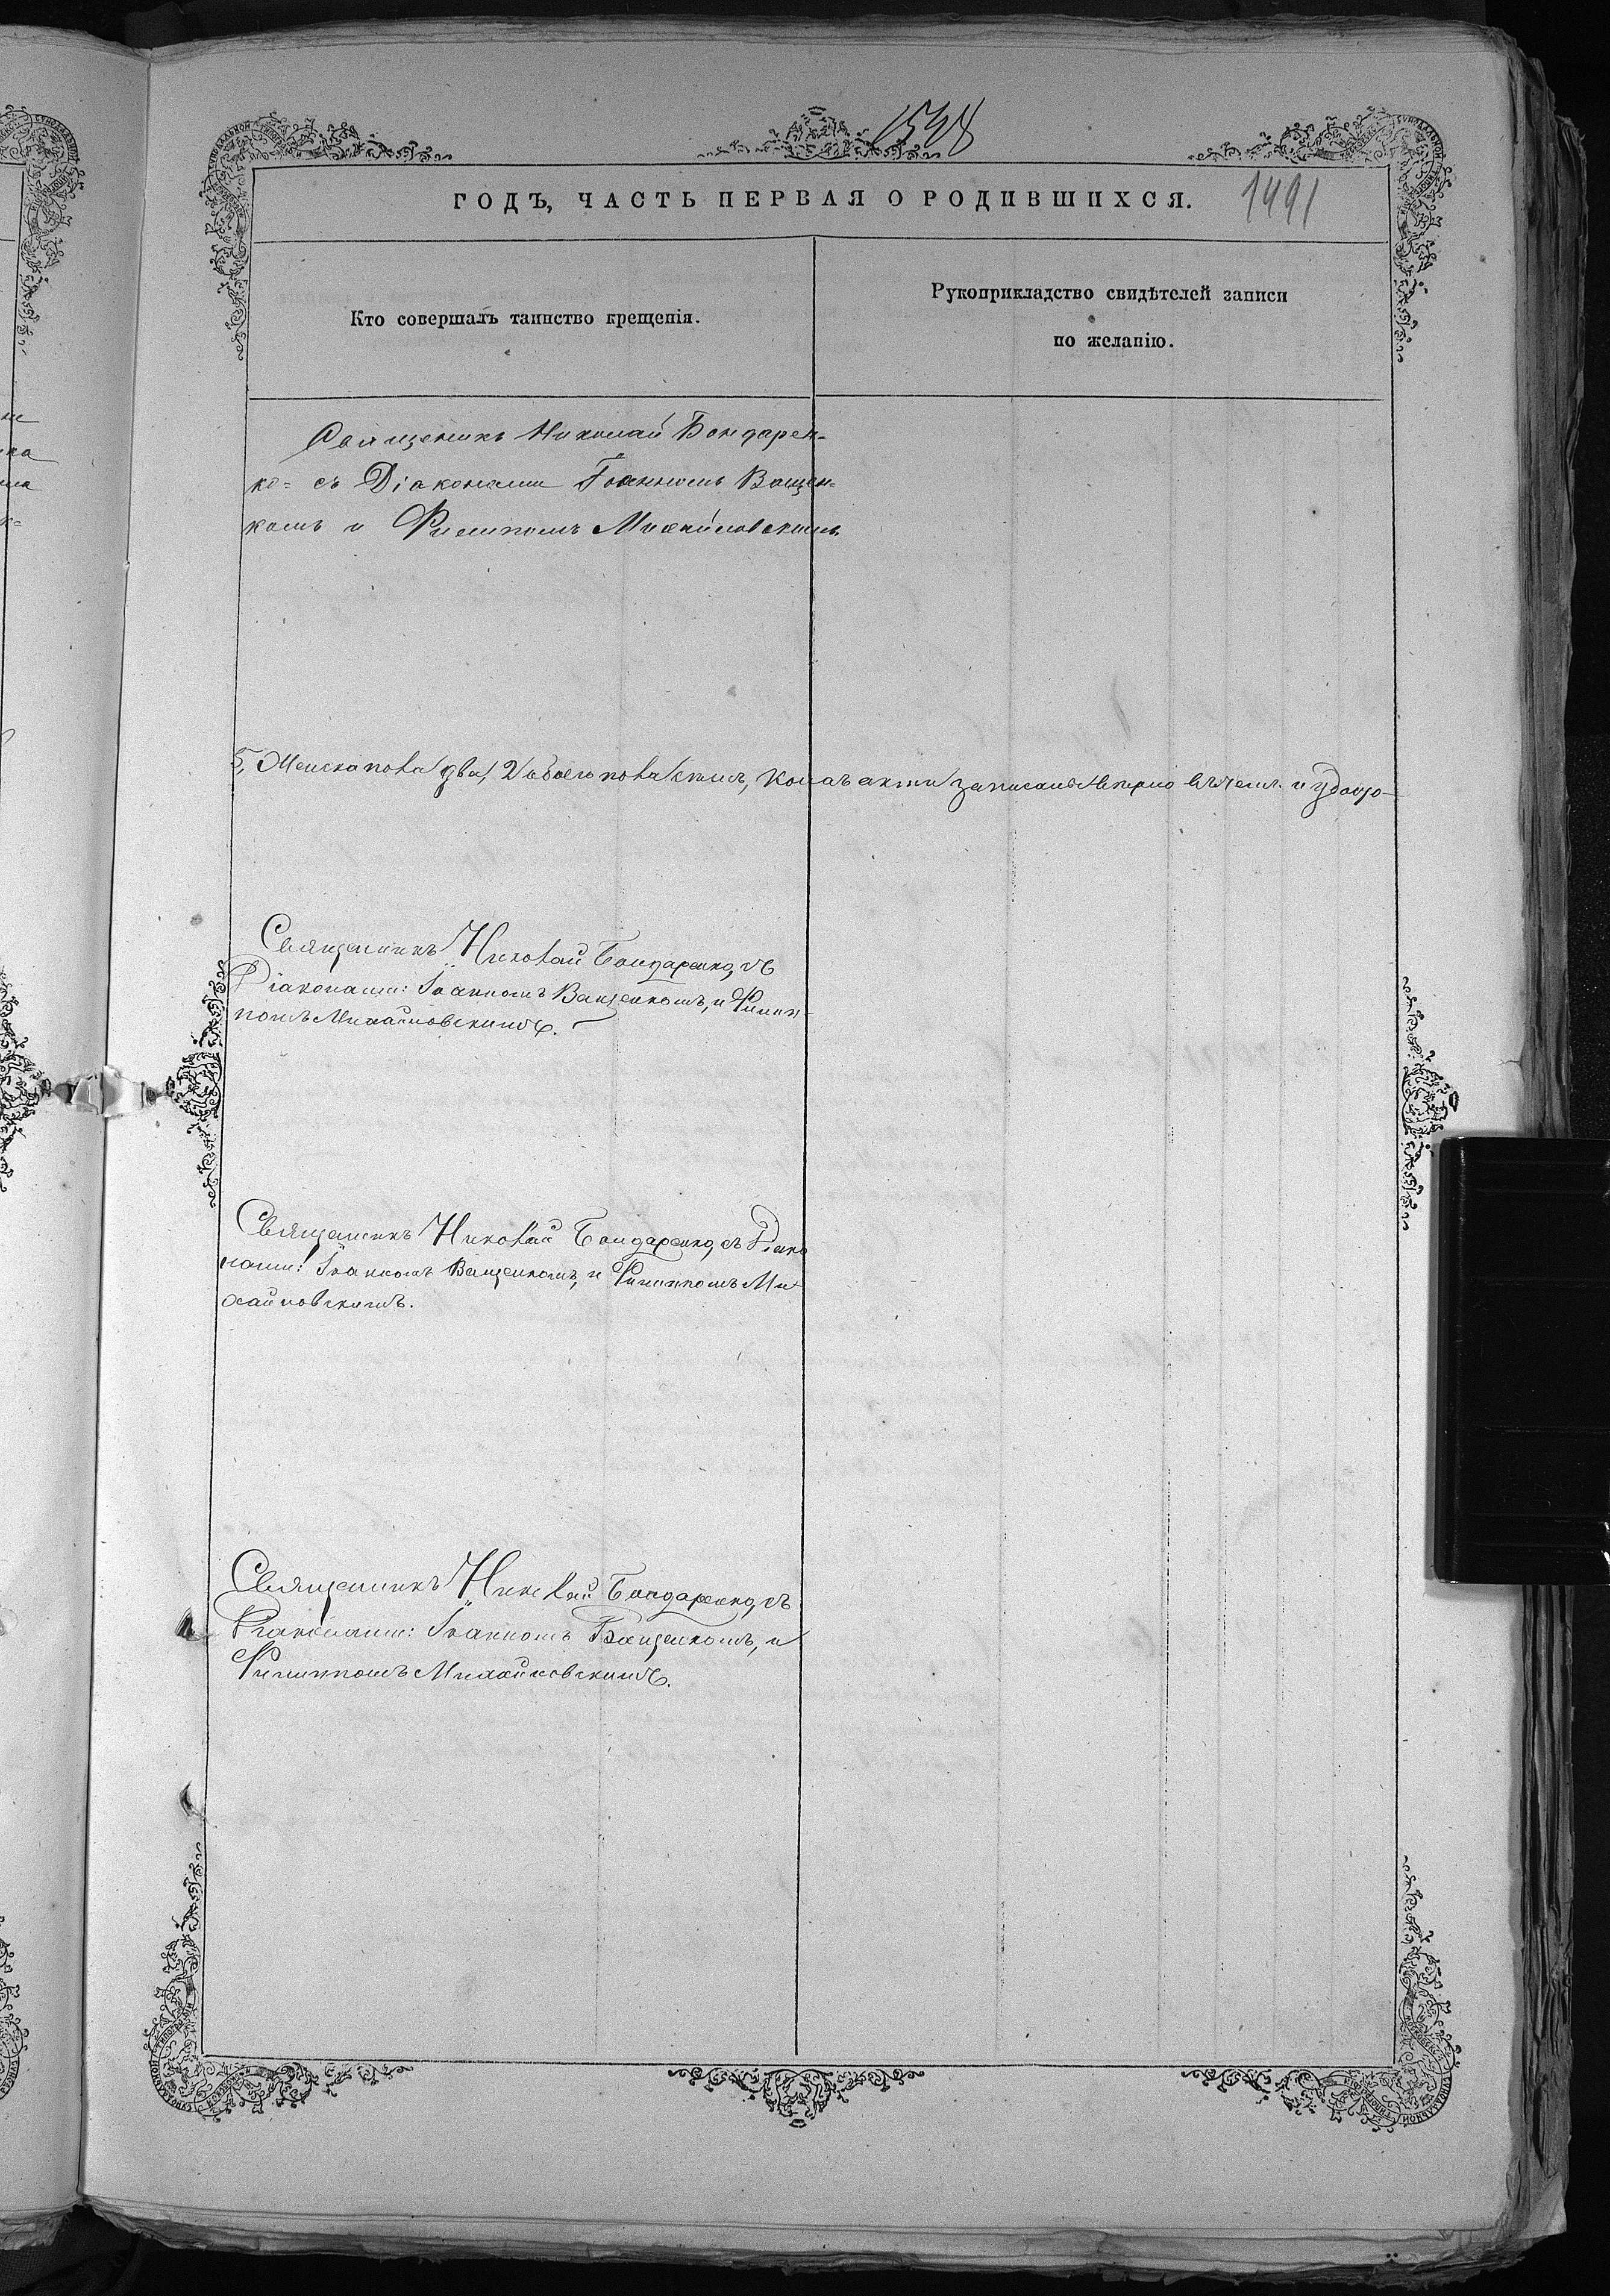 1598
ГОДЪ, ЧАСТЬ ПЕРВАЯ О РОДИВШИХСЯ.
1491
Кто совершалъ таинство крещенія.
Рукоприкладство свидѣтелей записи
по желанію.
Священикъ Николай Бондарен-
ко= съ Діаконами Іоанномъ Ващен-
комъ и Филипомъ Михайловскимъ
5, Женска пола /два/ 2 обоего пола
Священникъ Николай Бондаренко, съ
Діаконами: Іоанномъ Ващенкомъ, и Филип-
помъ Михайловскимъ.
Священникъ Николай Бондаренко, съ Діако
нами: Іоанномъ Ващенкомъ, и Филиппомъ Ми
хайловскимъ.
Священникъ Николай Бондаренко, съ
Діаконами: Іоанномъ Ващенкомъ, и
Филиппомъ Михайловскимъ.